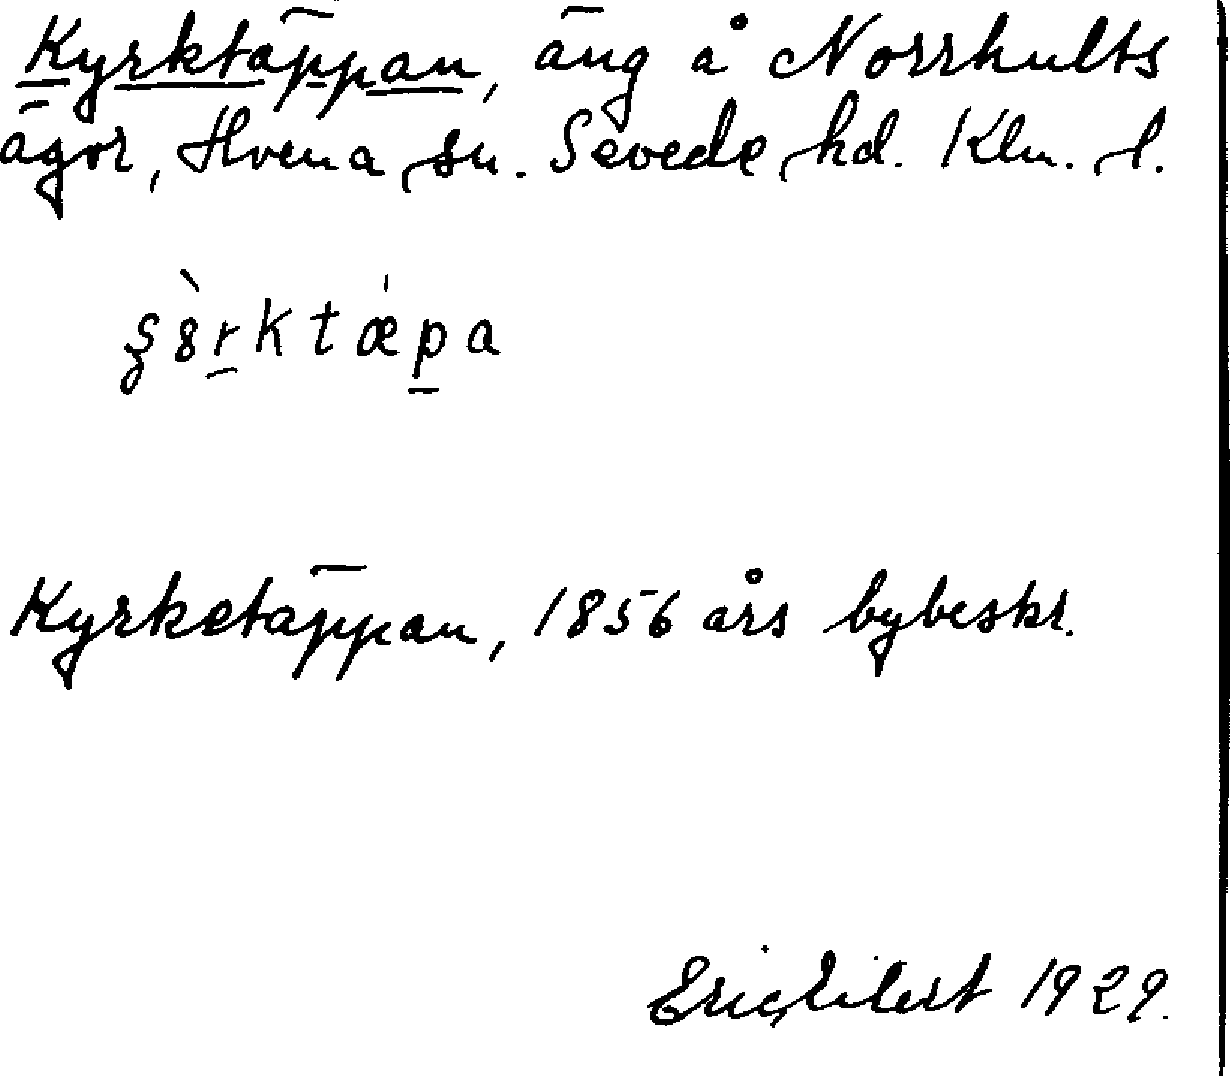 Kyrktäppan, äng å Norrhults
ägor, Hvena sn. Sevede hd. Klm. l.
Kyrketäppan, 1856 års bybeskr.
Eric Eilert 1929.